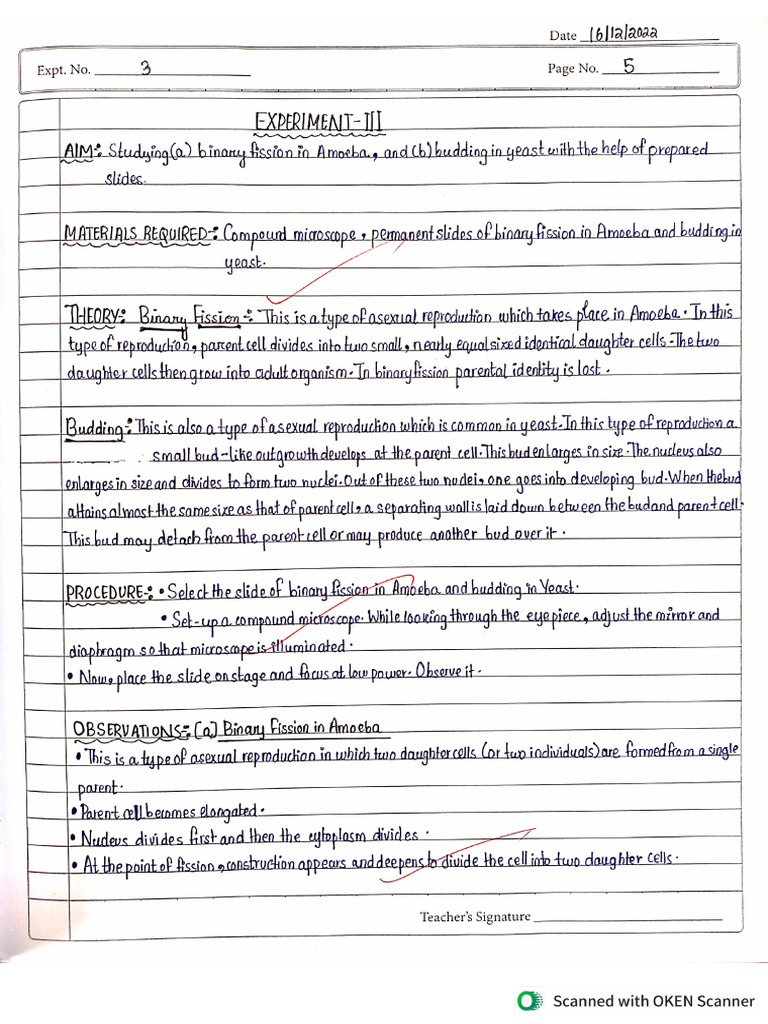 Date 16/12/2022
Expt. No. 3
Page No. 5
EXPERIMENT-III
AIM:- Studying (a) binary fission in Amoeba, and (b) budding in yeast with the help of prepared
slides.
MATERIALS REQUIRED:- Compound microscope, permanent slides of binary fission in Amoeba and budding in
yeast.
THEORY:- Binary Fission:- This is a type of asexual reproduction which takes place in Amoeba. In this
type of reproduction, parent cell divides into two small, nearly equal sized identical daughter cells. The two
daughter cells then grow into adult organism. In binary fission parental identity is lost.
Budding:- This is also a type of asexual reproduction which is common in yeast. In this type of reproduction a
small bud-like outgrowth develops at the parent cell. This bud enlarges in size. The nucleus also
enlarges in size and divides to form two nuclei. Out of these two nuclei, one goes into developing bud. When the bud
attains almost the same size as that of parent cell, a separating wall is laid down between the bud and parent cell.
This bud may detach from the parent cell or may produce another bud over it.
PROCEDURE:- • Select the slide of binary fission in Amoeba and budding in Yeast.
• Set-up a compound microscope. While looking through the eye piece, adjust the mirror and
diaphragm so that microscope is illuminated.
• Now, place the slide on stage and focus at low power. Observe it.
OBSERVATIONS:- (a) Binary Fission in Amoeba
• This is a type of asexual reproduction in which two daughter cells (or two individuals) are formed from a single
parent.
• Parent cell becomes elongated.
• Nucleus divides first and then the cytoplasm divides.
• At the point of fission, construction appears and deepens to divide the cell into two daughter cells.
Teacher's Signature
Scanned with OKEN Scanner